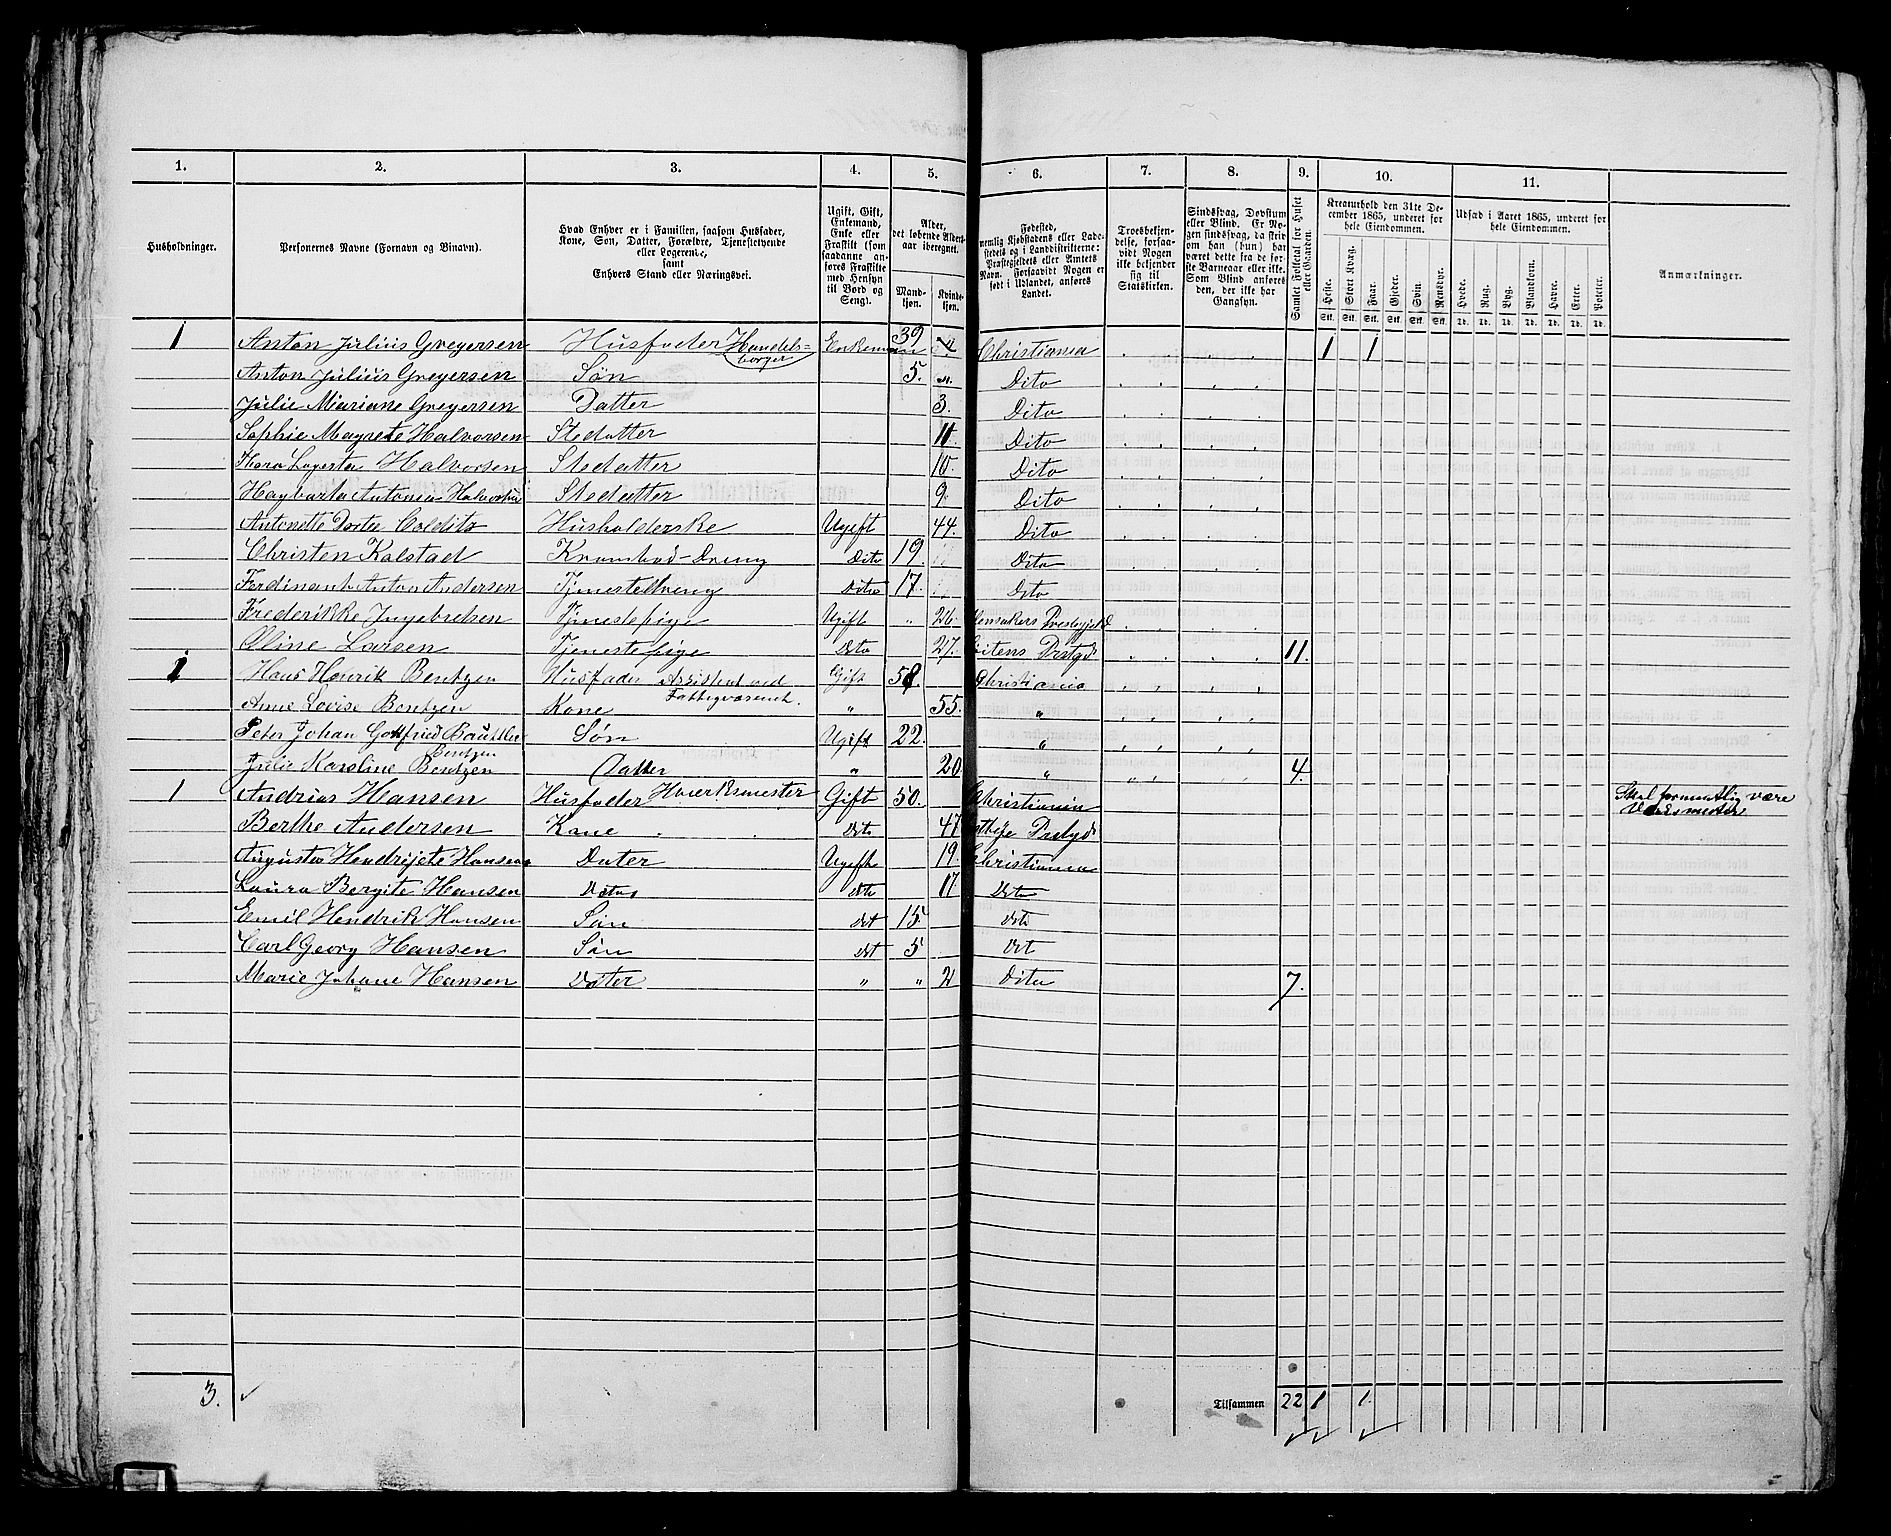 1. 2. 3. 4. 5. 6. 7. 8. 9. 10. 11.
Husholdninger.
Personernes Navne (Fornavn og Binavn).
Hvad Enhver er i Familien, saasom Husfader,
Kone, Søn, Datter, Forældre, Tjenestetyende
eller Logerende,
samt
Enhvers Stand eller Næringsvei.
Ugift, Gift,
Enkemand,
Enke eller
Fraskilt (som
saadanne an-
føres Fraskilte
med Hensyn
til Bord og
Seng).
Alder,
det løbende Alders-
aar iberegnet.
Mand-
kjøn.
Kvinde-
kjøn.
Fødested,
nemlig Kjøbstadens eller Lade-
stedets og i Landdistrikterne:
Præstegjeldets eller Amtets
Navn. Forsaavidt Nogen er
født i Udlandet, anføres
Landet.
Troesbekjen-
delse, forsaa-
vidt Nogen
ikke bekjender
sig til
Statskirken.
Sindssvag, Døvstum
eller Blind. Er No-
gen sindssvag, da skriv
om han (hun) har
været dette fra de før-
ste Barneaar eller ikke.
Som Blind anføres
den, der ikke har
Gangsyn.
Samlet Folketal for Huset
eller Gaarden.
Kreaturhold den 31te De-
cember 1865, underet for
hele Eiendommen.
Heste. Stort Kvæg. Faar. Gjeder. Svin. Rensdyr.
Stk. Stk. Stk. Stk. Stk. Stk.
Udsæd i Aaret 1865, underet for
hele Eiendommen.
Hvede. Rug. Byg. Blandkorn. Havre. Erter. Poteter.
Td. Td. Td. Td. Td. Td. Td.
Anmærkninger.
1 Anton Julius Gregersen Husfader Handels- Enkeman 39 Christiania 1 1
borger
Anton Julius Gregersen Søn 5. Dito
Julie Mariane Gregersen Datter 3. Dito
Sophie Magrete Halvorsen Stedatter 11 Dito
Halvorsen Stedatter 10. Dito
Antonia Stedatter 9. Dito
Antonette Husholderske Ugift 44. Dito
Christen Kalstad Krambod-Dreng Dito 19. Dito
Ferdinant Anton Andersen Tjenestedreng Dito 17. Dito
Frederikke Ingebretsen Tjenestepige Ugift " 26.
Oline Larsen Tjenestepige Dito 27. 11.
1 Hans Henrik Bentzen Husfader Assistent ved Gift 58. Christiania
Fattigvæsenet.
Anne Lovise Bentzen Kone " 55. "
Peter Johan Gottfried Søn Ugift 22. "
Bentzen
Julie Karoline Bentzen Datter " 20 " 4.
1 Andrias Hansen Husfader Gift 50. Christiania Skal formentlig være
Berthe Andersen Kone Dito 47
Augusta Hendrijete Hansen Dater Ugifte 19. Christiania
Laura Bergite Hansen Dater Dito 17. Dito
Emil Hendrik Hansen Søn det 15. Dito
Carl Georg Hansen Søn det 5 Det
Marie Johane Hansen Dater " " 2 Dito 7.
3. Tilsammen 22 1 1.